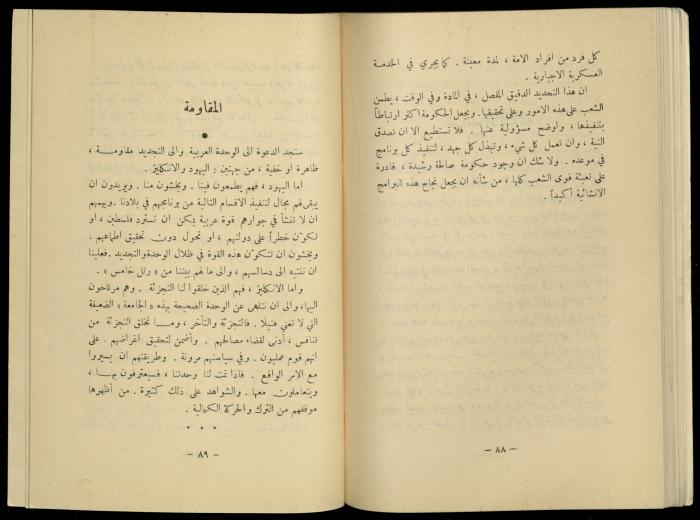 كل فرد من افراد الامة ، لمدة معينة . كما يجري في الخدمة
العسكرية الاجبارية .
ان هذا التحديد الدقيق المفصل ، في المادة وفي الوقت ، يطمن
الشعب على هذه الامور وعلى تحقيقها . ويجعل الحكومة اكثر ارتباطاً
بتنفيذها ، واوضح مسؤولية عنها . فلا تستطيع الا ان تصدق
النية ، وان تعمل كل شيء ، وتبذل كل جهد ، لتنفيذ كل برنامج
في موعده . ولا شك ان وجود حكومة صالحة رشيدة ، قادرة
على تعبئة قوى الشعب كلها ، من شأنه ان يجعل نجاح هذه البرامج
الانشائية أكيداً .
— ٨٨ —
المقاومة
•
ستجد الدعوة الى الوحدة العربية والى التجديد مقاومة ،
ظاهرة او خفية ، من جهتين : اليهود والانكليز .
اما اليهود ، فهم يطمعون فينا . ويخشون منا . ويريدون ان
يبقى لهم مجال لتنفيذ الاقسام التالية من برنامجهم في بلادنا . ويهمهم
ان لا تنشأ في جوارهم قوة عربية يمكن ان تسترد فلسطين ، او
تكوّن خطراً على دولتهم ، او تحول دون تحقيق اطماعهم .
ويخشون ان تتكوّن هذه القوة في ظلال الوحدة والتجديد . فعلينا
ان ننتبه الى دسائسهم ، والى ما لهم بيننا من « رتل خامس » .
واما الانكليز ، فهم الذين خلقوا لنا التجزئة . وهم مرتاحون
اليها ، والى ان نتلهى عن الوحدة الصحيحة بهذه « الجامعة » الضعيفة
التي لا تغني فتيلًا . فالتجزئة والتأخر ، وما تخلق التجزئة من
تنافس ، أدنى لقضاء مصالحهم . وأضمن لتحقيق اغراضهم . على
انهم قوم عمليون . وفي سياستهم مرونة . وطريقتهم ان يسيروا
مع الامر الواقع . فاذا تمت لنا وحدتنا ، فسيعترفون بها ،
ويتعاملون معها . والشواهد على ذلك كثيرة . من أظهرها
موقفهم من الترك والحركة الكمالية .
• • •
— ٨٩ —